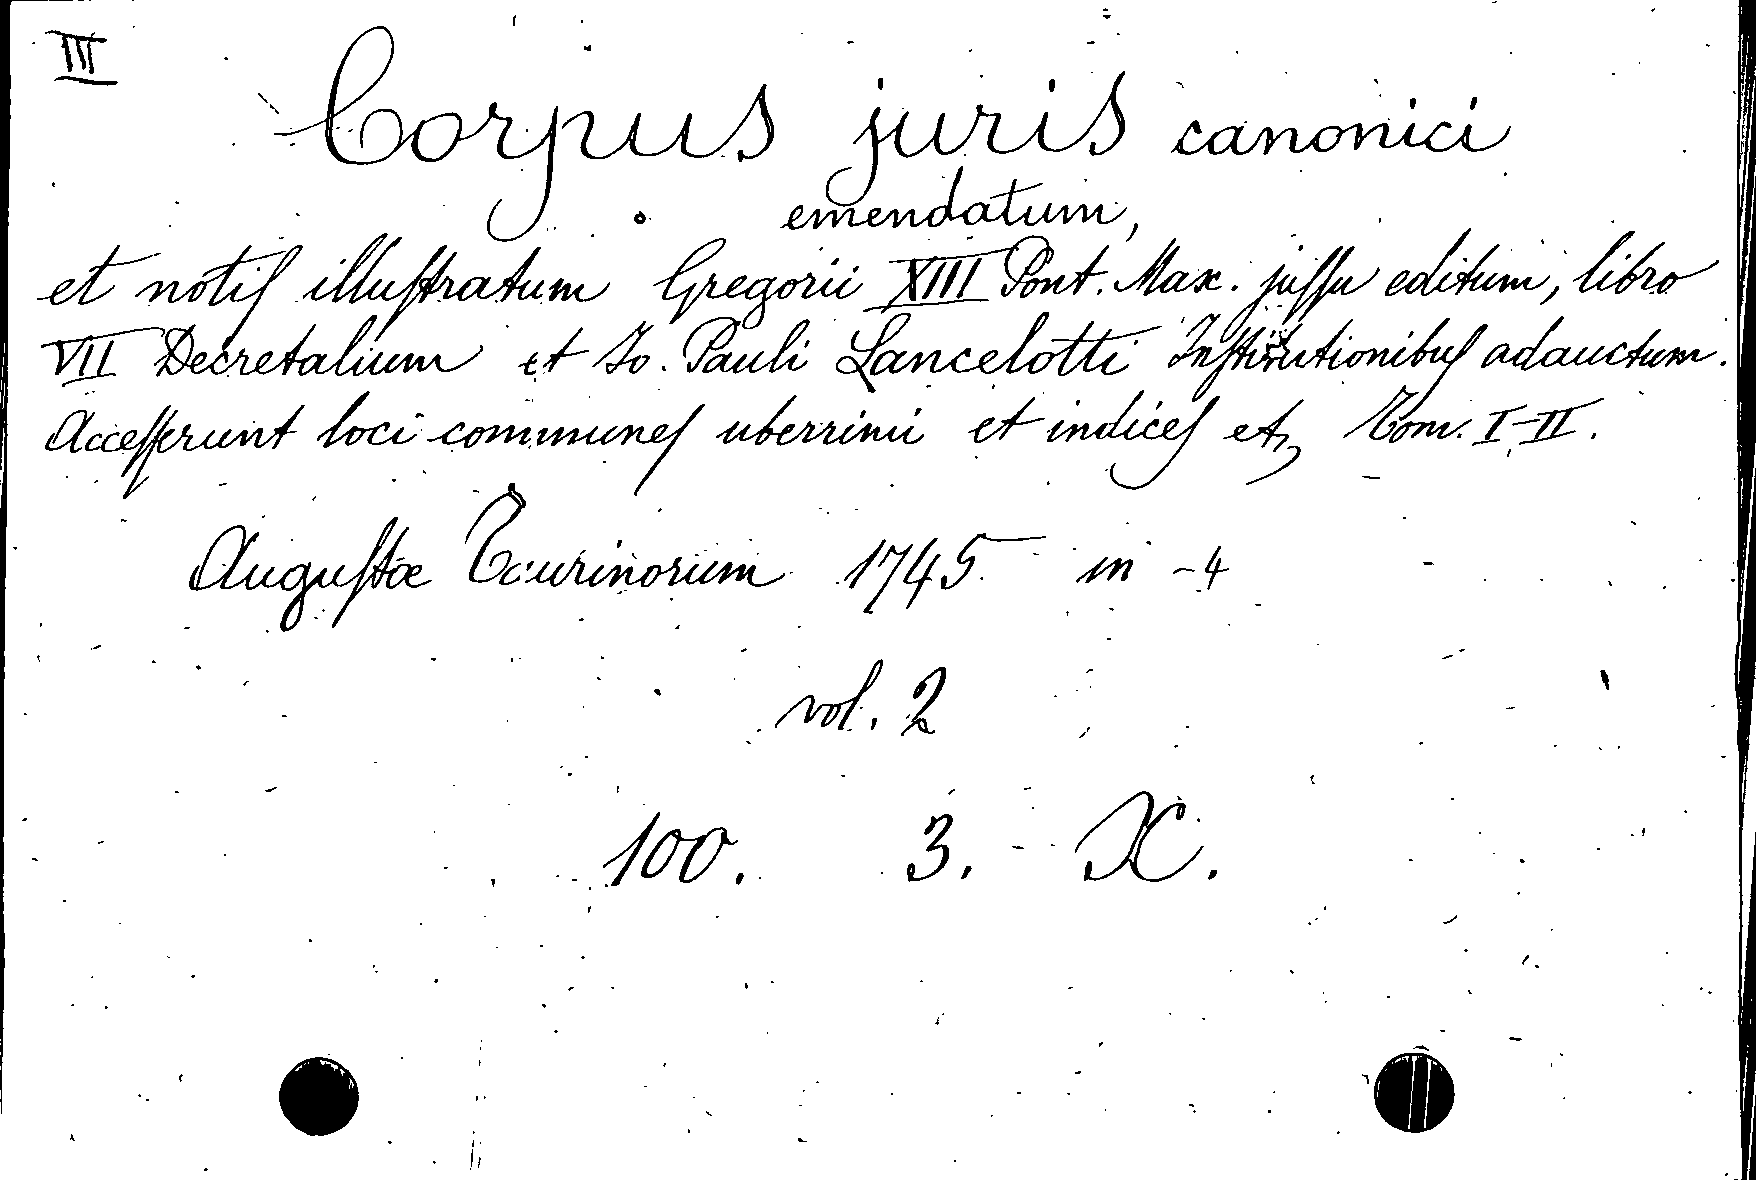 III
Corpus juris canonici
emendatum,
et notiſ illuſtratum Gregorii XIII Pont. Max. juſſu editum, libro
VII Decretalium et Jo. Pauli Lancelotti Inſtitutionibuſ adauctum.
Acceſſerunt loci communeſ uberrimi et indiceſ etz Tom. I-II.
Auguſtæ Taurinorum 1745 in -4
vol. 2
100. 3. X.